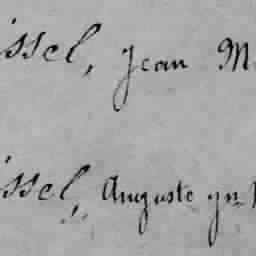 issel, Jean M
issel, Auguste